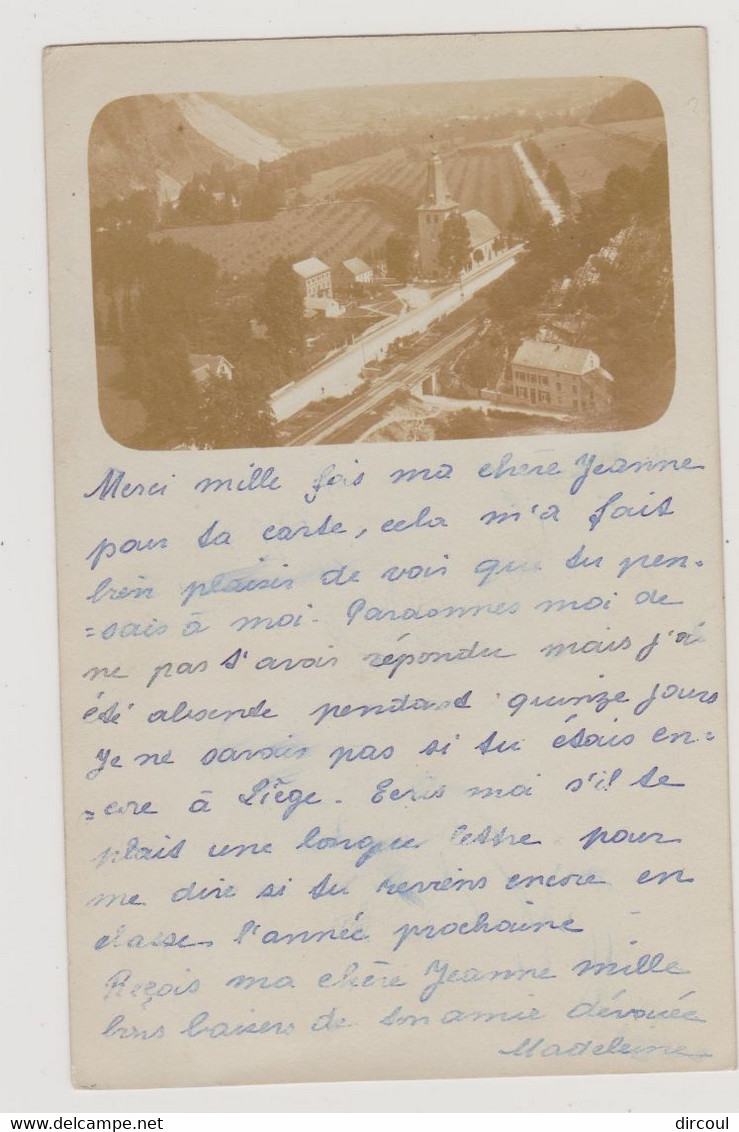 Merci mille fois ma chère Jeanne
pour ta carte, cela m'a fait
bien plaisir de voir que tu pen-
=sais à moi. Pardonnes moi de
ne pas t'avoir répondu mais j'ai
été absende pendant quinze jours
Je ne savais pas si tu étais en-
=core à Liège. Ecris moi s'il te
plait une longue lettre pour
me dire si tu reviens encore en
classe l'année prochaine
Reçois ma chère Jeanne mille
bons baisers de ton amie dévouée
Madeleine
delcampe.net
dircoul